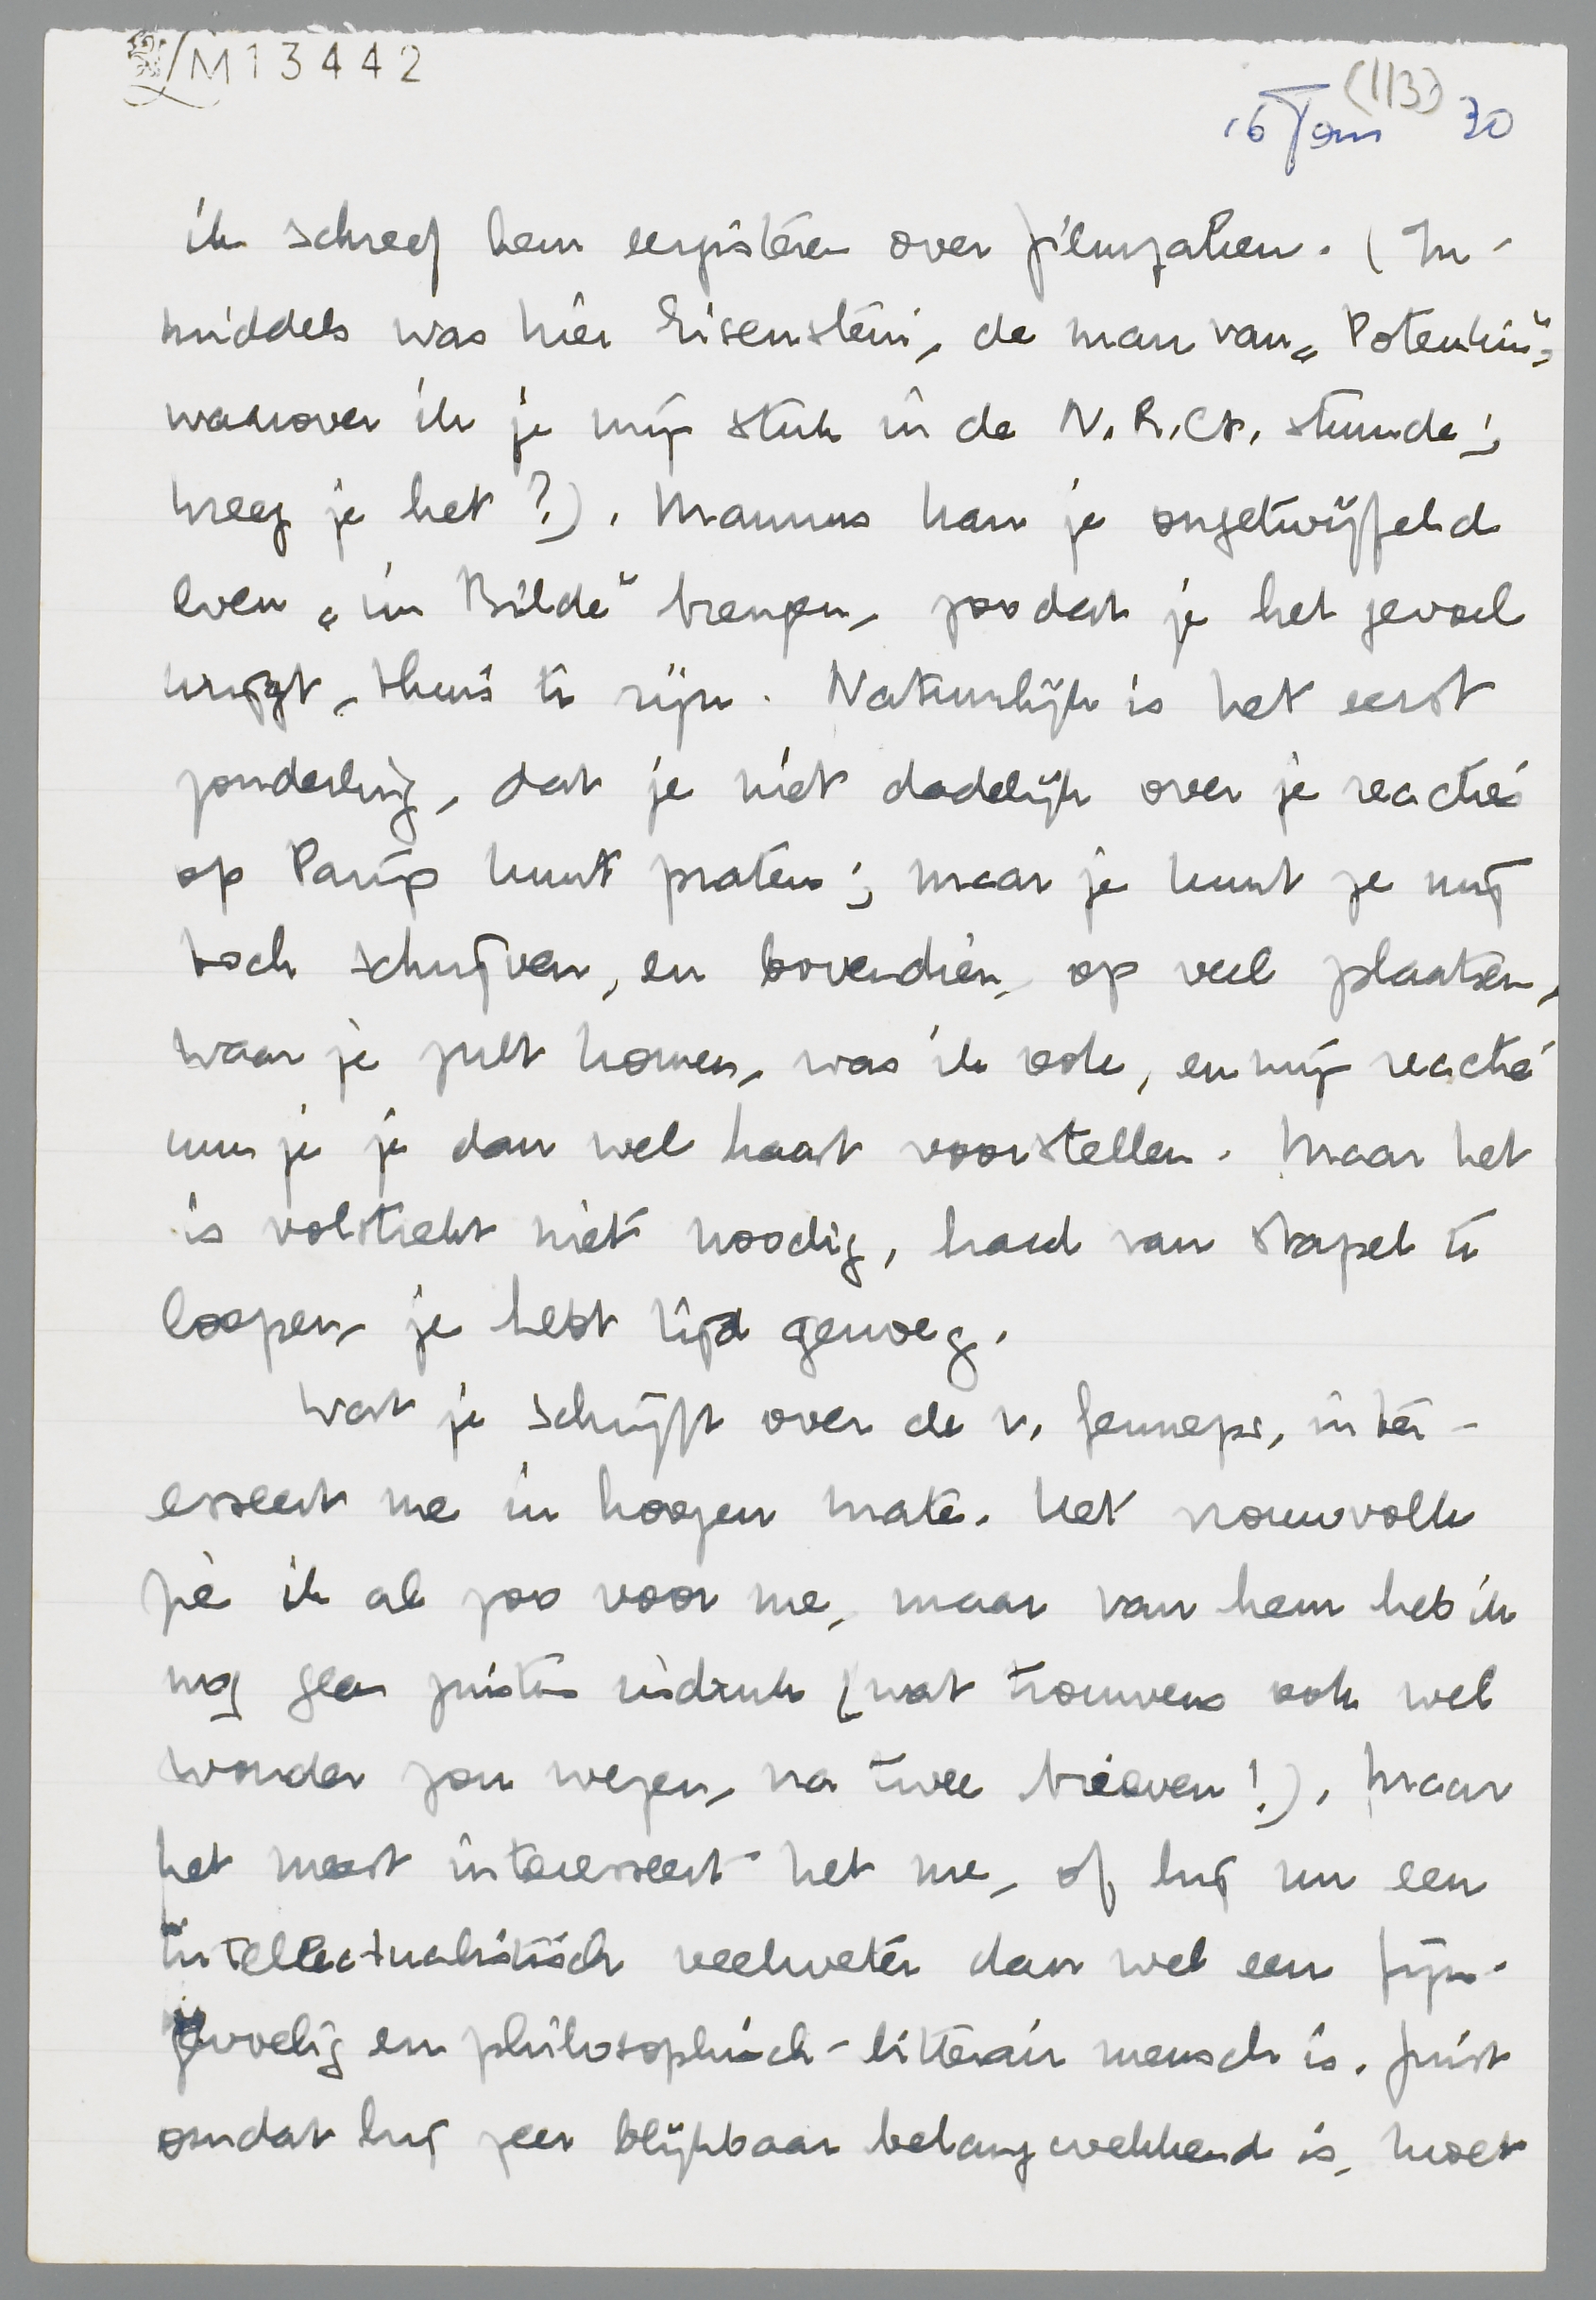 M13442
(113)
16 Jan 30
ik schreef hem eergisteren over filmzaken. (In-
middels was hier Eisenstein, de man van „Potemkin",
waarover ik je mijn stuk in de N.R.Ct. stuurde;
kreeg je het?). Mannus kan je ongetwijfeld
even „im Bilde" brengen, zoodat je het gevoel
krijgt, thuis te zijn. Natuurlijk is het eerst
zonderling, dat je niet dadelijk over je reacties
op Parijs kunt praten; maar je kunt ze mij
toch schrijven, en bovendien, op veel plaatsen,
waar je zult komen, was ik ook, en mijn reactie
kun je je dan wel haast voorstellen. Maar het
is volstrekt niet noodig, hard van stapel te
loopen, je hebt tijd genoeg.
Wat je schrijft over de v. Genneps, inter-
esseert me in hoogen mate. Het vrouwvolk
zie ik al zoo voor me, maar van hem heb ik
nog geen juisten indruk (wat trouwens ook wel
wonder zou wezen, na twee brieven!). Maar
het meest interesseert het me, of hij nu een
intellectualistisch veelweter dan wel een fijn-
gevoelig en philosophisch-litterair mensch is. Juist
omdat hij zeer blijkbaar belangwekkend is, moet